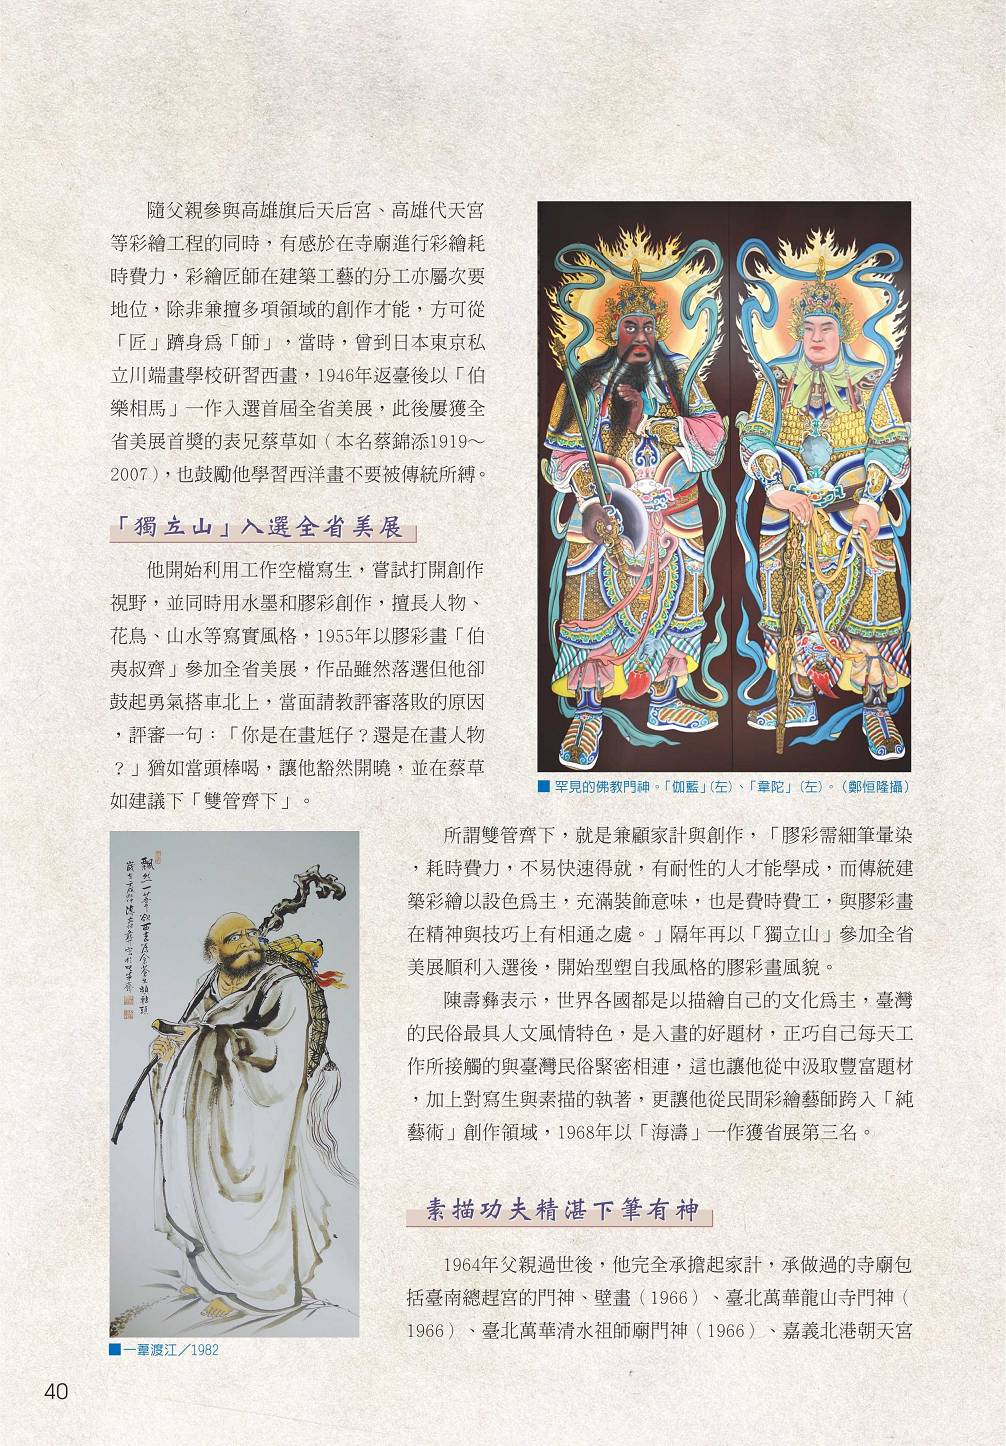 隨父親參與高雄旗后天后宮、高雄代天宮
等彩繪工程的同時，有感於在寺廟進行彩繪耗
時費力，彩繪匠師在建築工藝的分工亦屬次要
地位，除非兼擅多項領域的創作才能，方可從
「匠」躋身為「師」，當時，曾到日本東京私
立川端畫學校研習西畫，1946年返臺後以「伯
樂相馬」一作入選首屆全省美展，此後屢獲全
省美展首獎的表兄蔡草如（本名蔡錦添1919～
2007），也鼓勵他學習西洋畫不要被傳統所縛。
「獨立山」入選全省美展
他開始利用工作空檔寫生，嘗試打開創作
視野，並同時用水墨和膠彩創作，擅長人物、
花鳥、山水等寫實風格，1955年以膠彩畫「伯
夷叔齊」參加全省美展，作品雖然落選但他卻
鼓起勇氣搭車北上，當面請教評審落敗的原因
，評審一句：「你是在畫尪仔？還是在畫人物
？」猶如當頭棒喝，讓他豁然開曉，並在蔡草
如建議下「雙管齊下」。
■ 罕見的佛教門神。「伽藍」（左）、「韋陀」（左）。（鄭恒隆攝）
所謂雙管齊下，就是兼顧家計與創作，「膠彩需細筆暈染
，耗時費力，不易快速得就，有耐性的人才能學成，而傳統建
築彩繪以設色為主，充滿裝飾意味，也是費時費工，與膠彩畫
在精神與技巧上有相通之處。」隔年再以「獨立山」參加全省
美展順利入選後，開始型塑自我風格的膠彩畫風貌。
陳壽彝表示，世界各國都是以描繪自己的文化為主，臺灣
的民俗最具人文風情特色，是入畫的好題材，正巧自己每天工
作所接觸的與臺灣民俗緊密相連，這也讓他從中汲取豐富題材
，加上對寫生與素描的執著，更讓他從民間彩繪藝師跨入「純
藝術」創作領域，1968年以「海濤」一作獲省展第三名。
素描功夫精湛下筆有神
1964年父親過世後，他完全承擔起家計，承做過的寺廟包
括臺南總趕宮的門神、壁畫（1966）、臺北萬華龍山寺門神（
1966）、臺北萬華清水祖師廟門神（1966）、嘉義北港朝天宮
■一葦渡江／1982
40